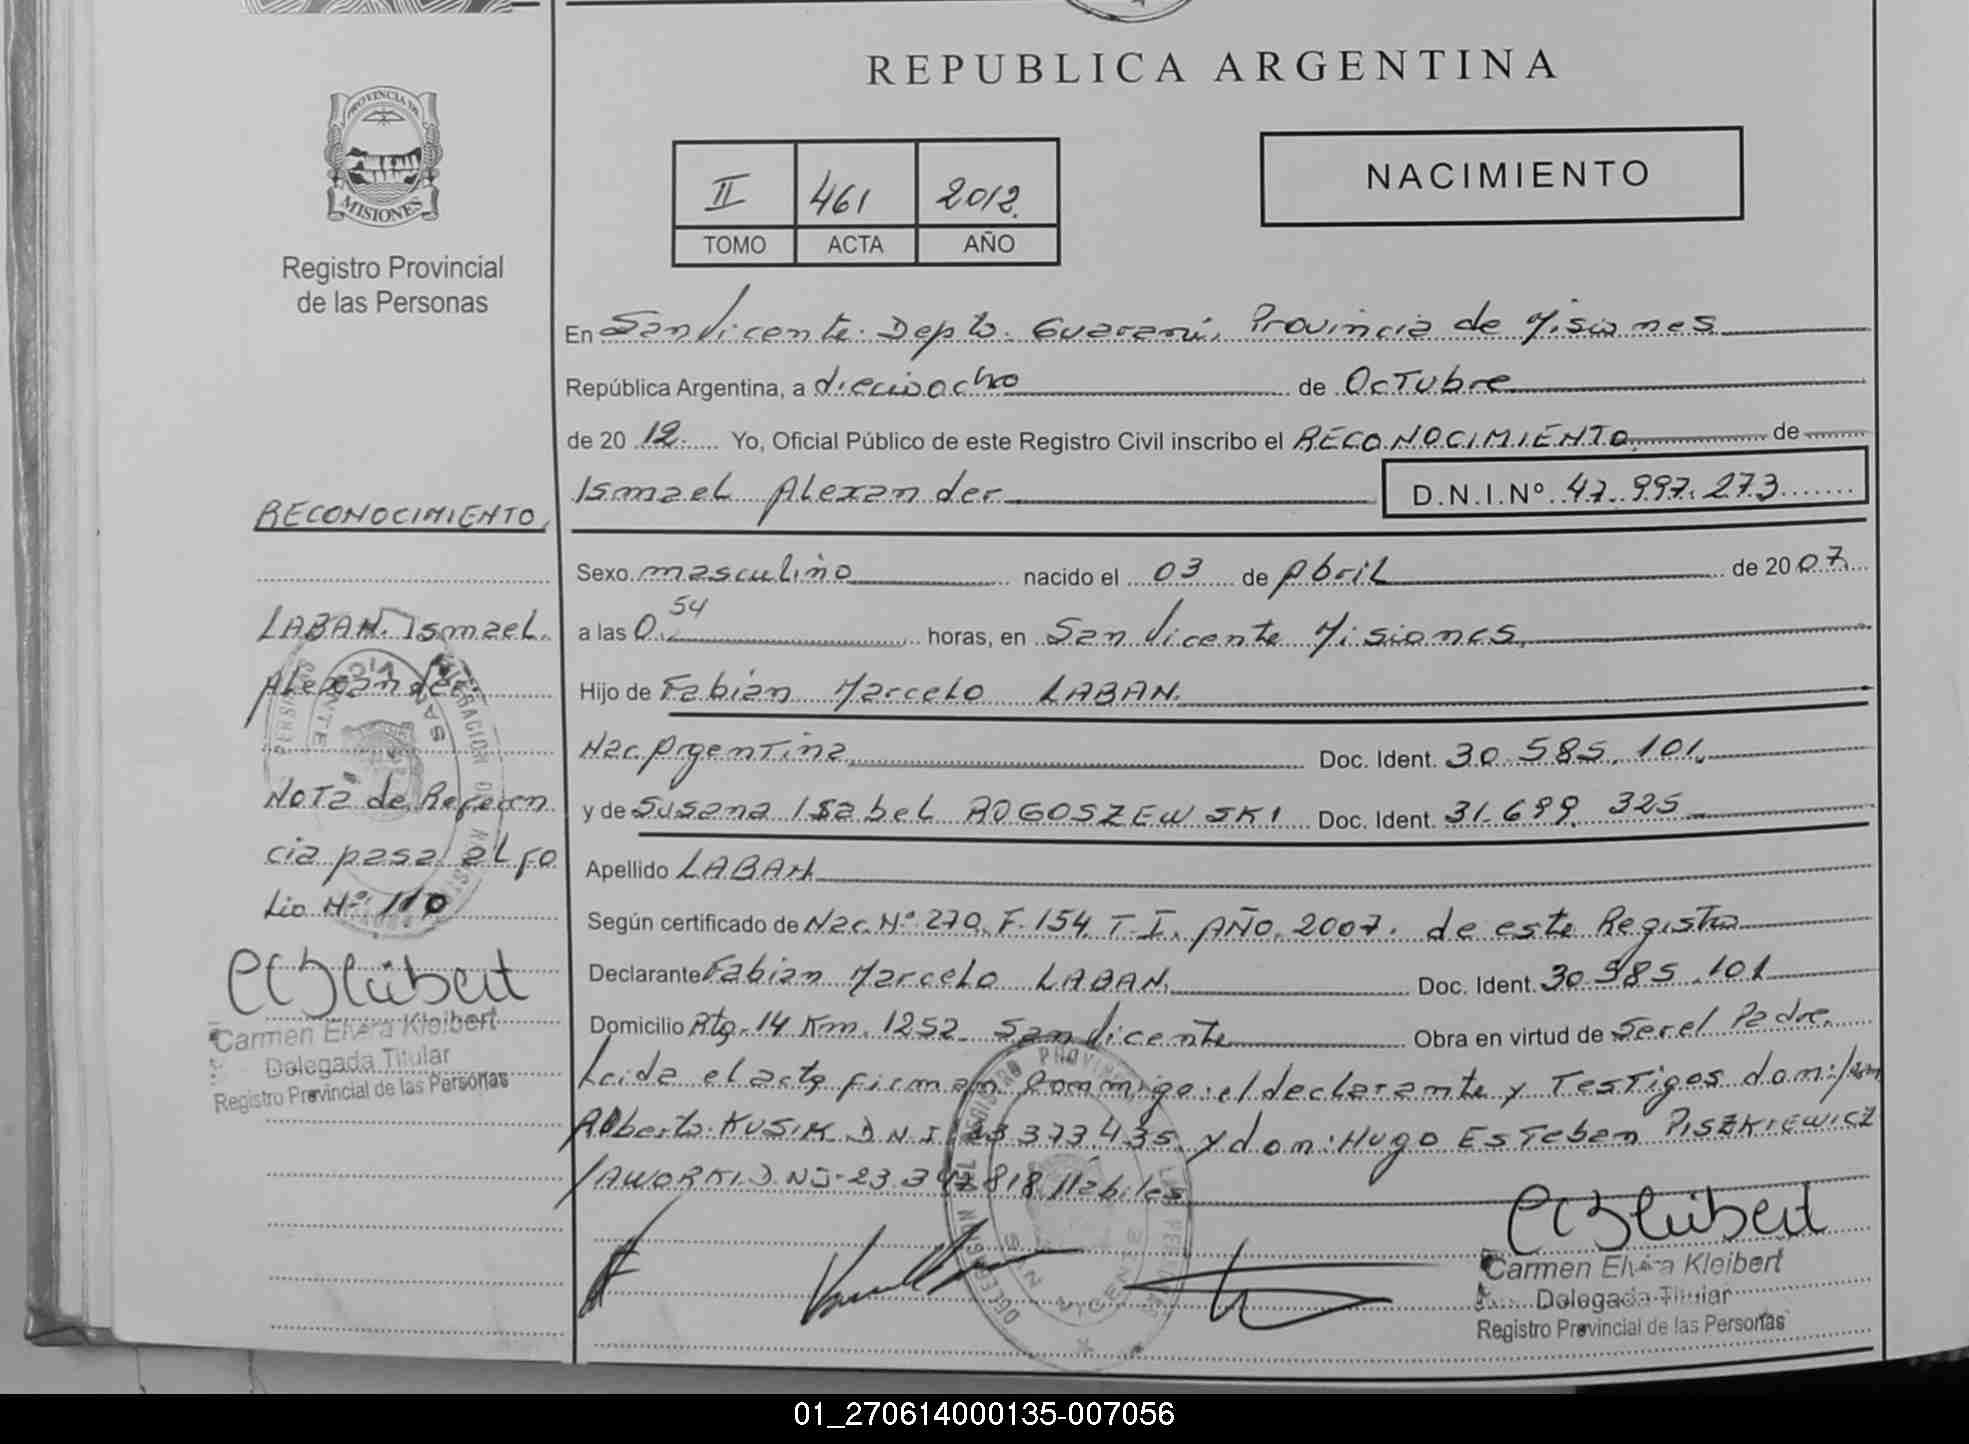 PROVINCIA DE
MISIONES
Registro Provincial
de las Personas
REPUBLICA ARGENTINA
II 461 2012
TOMO ACTA AÑO
NACIMIENTO
En San Vicente Depto. Guaraní, Provincia de Misiones
República Argentina, a dieciocho de Octubre
de 2012. Yo, Oficial Público de este Registro Civil inscribo el RECONOCIMIENTO de
Ismael Alexander D.N.I.Nº 47.997.273
Sexo masculino nacido el 03 de Abril de 2007
a las 0,54 horas, en San Vicente Misiones,
Hijo de Fabián Marcelo LABAN.
Nac. Argentina Doc. Ident. 30.585.101
y de Susana Isabel ROGOSZEWSKI Doc. Ident. 31.699.325
Apellido LABAN
Según certificado de Nac. Nº 270. F. 154 T-I. AÑO 2007. de este Registro
Declarante Fabian Marcelo LABAN. Doc. Ident. 30.585.101
Domicilio Rta. 14 Km. 1252 San Vicente Obra en virtud de Ser el Padre.
Leida el acta firman Conmigo el declarante y Testigos don:
Roberto KUSIK D N I 373 435 y don: Hugo Esteban PISZKIEWICZ
JAWORKI D NI-23.347818 Hábiles
Carmen Elvira Kleibert
Delegada Titular
Registro Provincial de las Personas
RECONOCIMIENTO
LABAN. Ismael
Alexander
Nota de Referen
cia pasa al fo
Lio Nº 110
Carmen Elvira Kleibert
Delegada Titular
Registro Provincial de las Personas
01_270614000135-007056